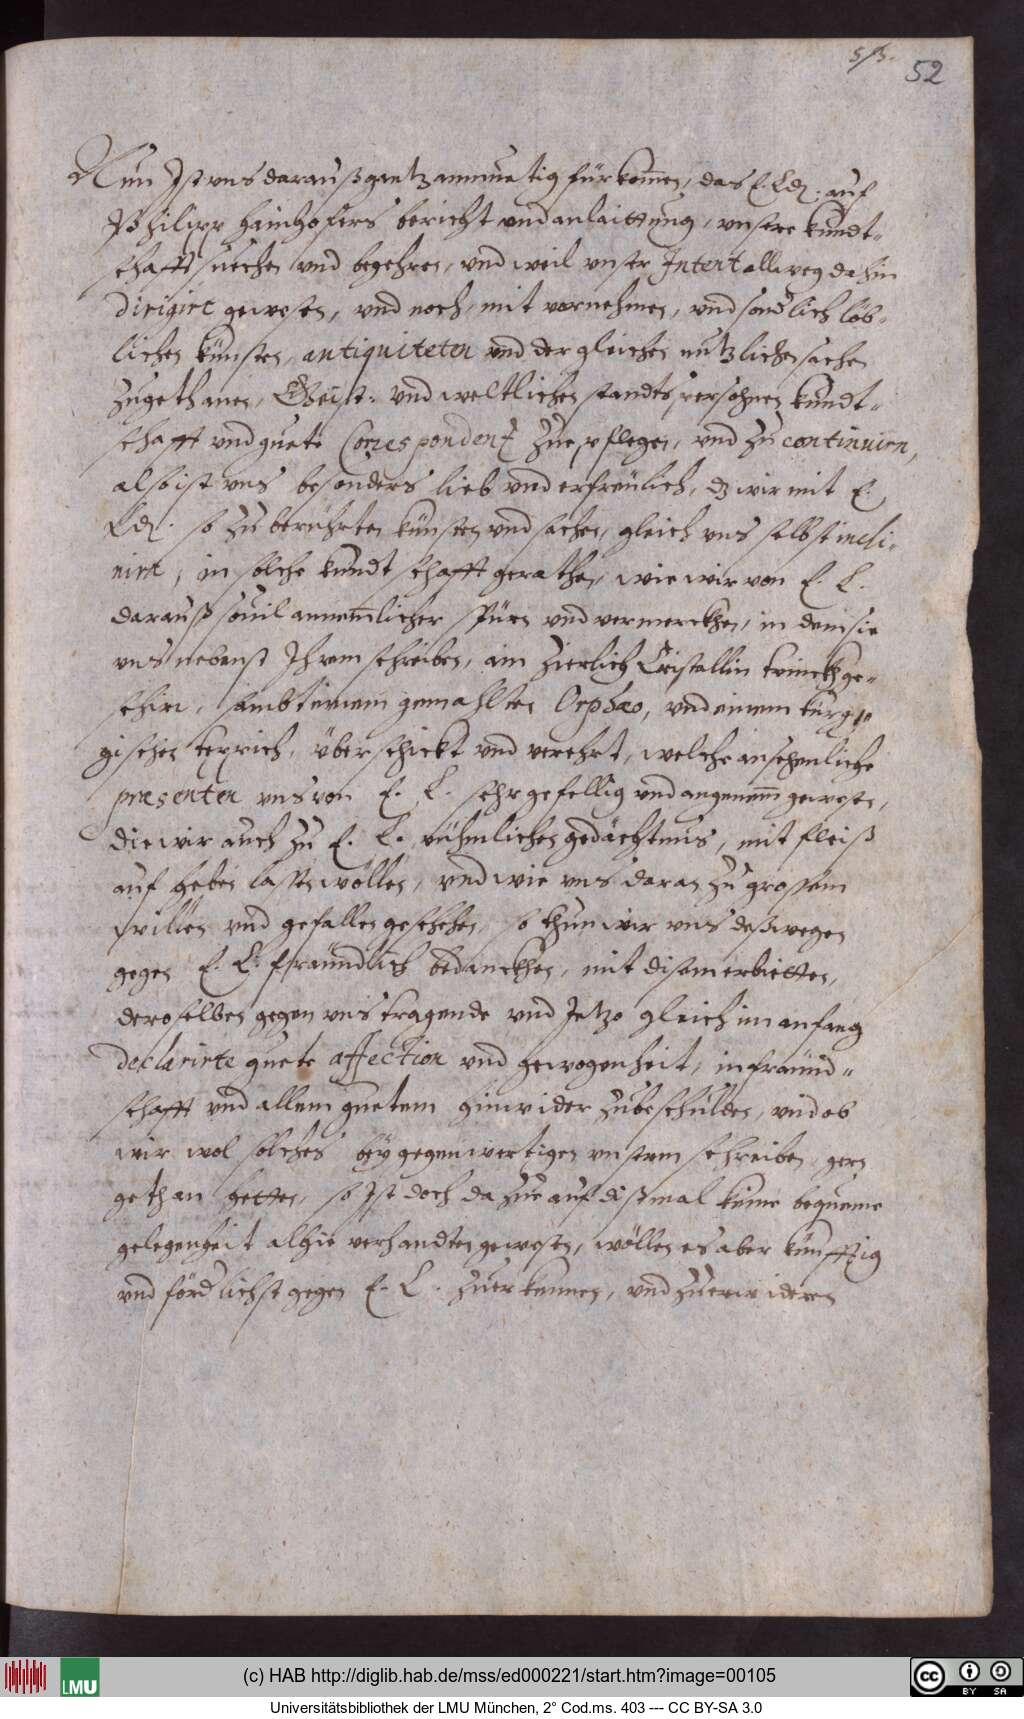 53.
52
Nun Ist vns darauß gantz anmuetig fürkom̅en, das E. Ldn. auf
Philipp Hainhofers bericht vnd anlaittung, vnsere kundt-
schafft suechen vnd begehren, vnd weil vnser Intent allweg dahin
dirigirt gewesen, vnd noch, mit vornehmen, vnd sond'lich löb-
lichen künsten, antiquiteten vnd dergleichen nutzlichen sachen
zugethanen, Geist- vnd weltlichen standtspersohnen kundt-
schafft vnd guete Correspondentz zuepflegen, vnd zu continuirn,
also ist vns besonders lieb vnd erfreülich, dz wir mit E.
Ldn. so zu berührten künsten vnd sachen, gleich vns selbst incli-
nirt, in solche kundtschafft gerathen, wie wir von E. L.
darauß souil annem̅licher spüren vnd vermerckhen, in dem sie
vns nebenst Ihrem schreiben, ain zierlich Cristallin trinckhge-
schirr, sambt einem gemahlten Orphæo, vnd einem türg-
gischen teppich, überschickt vnd verehrt, welche ansehenliche
præsenten vns von E. L. sehr gefellig vnd angenem̅ gewesen,
die wir auch zu E. L. rühmlichen gedächtnus, mit fleiß
aufheben lassen wöllen, vnd wie vns daran zu grossem
willen vnd gefallen geschehen, so thun wir vns deßwegen
gegen E. L. fraündtlich bedanckhen, mit disem erbietten,
deroselben gegen vns tragende vnd Jetzo gleich im anfang
declarirte guete affection vnd gewogenheit, in fraündt-
schafft vnd allem guetem hinwider zubeschulden, vnd ob
wir wol solches bey gegenwertigen vnserm schreiben gern
gethan hetten, so Ist doch dazue auf dißmal keine bequeme
gelegenheit alhie verhandten gewesen, wöllen es aber künfftig
vnd förd'lichst gegen E. L. zuerkennen, vnd zuerwideren
(c) HAB http://diglib.hab.de/mss/ed000221/start.htm?image=00105
LMU
cc BY SA
Universitätsbibliothek der LMU München, 2° Cod.ms. 403 --- CC BY-SA 3.0